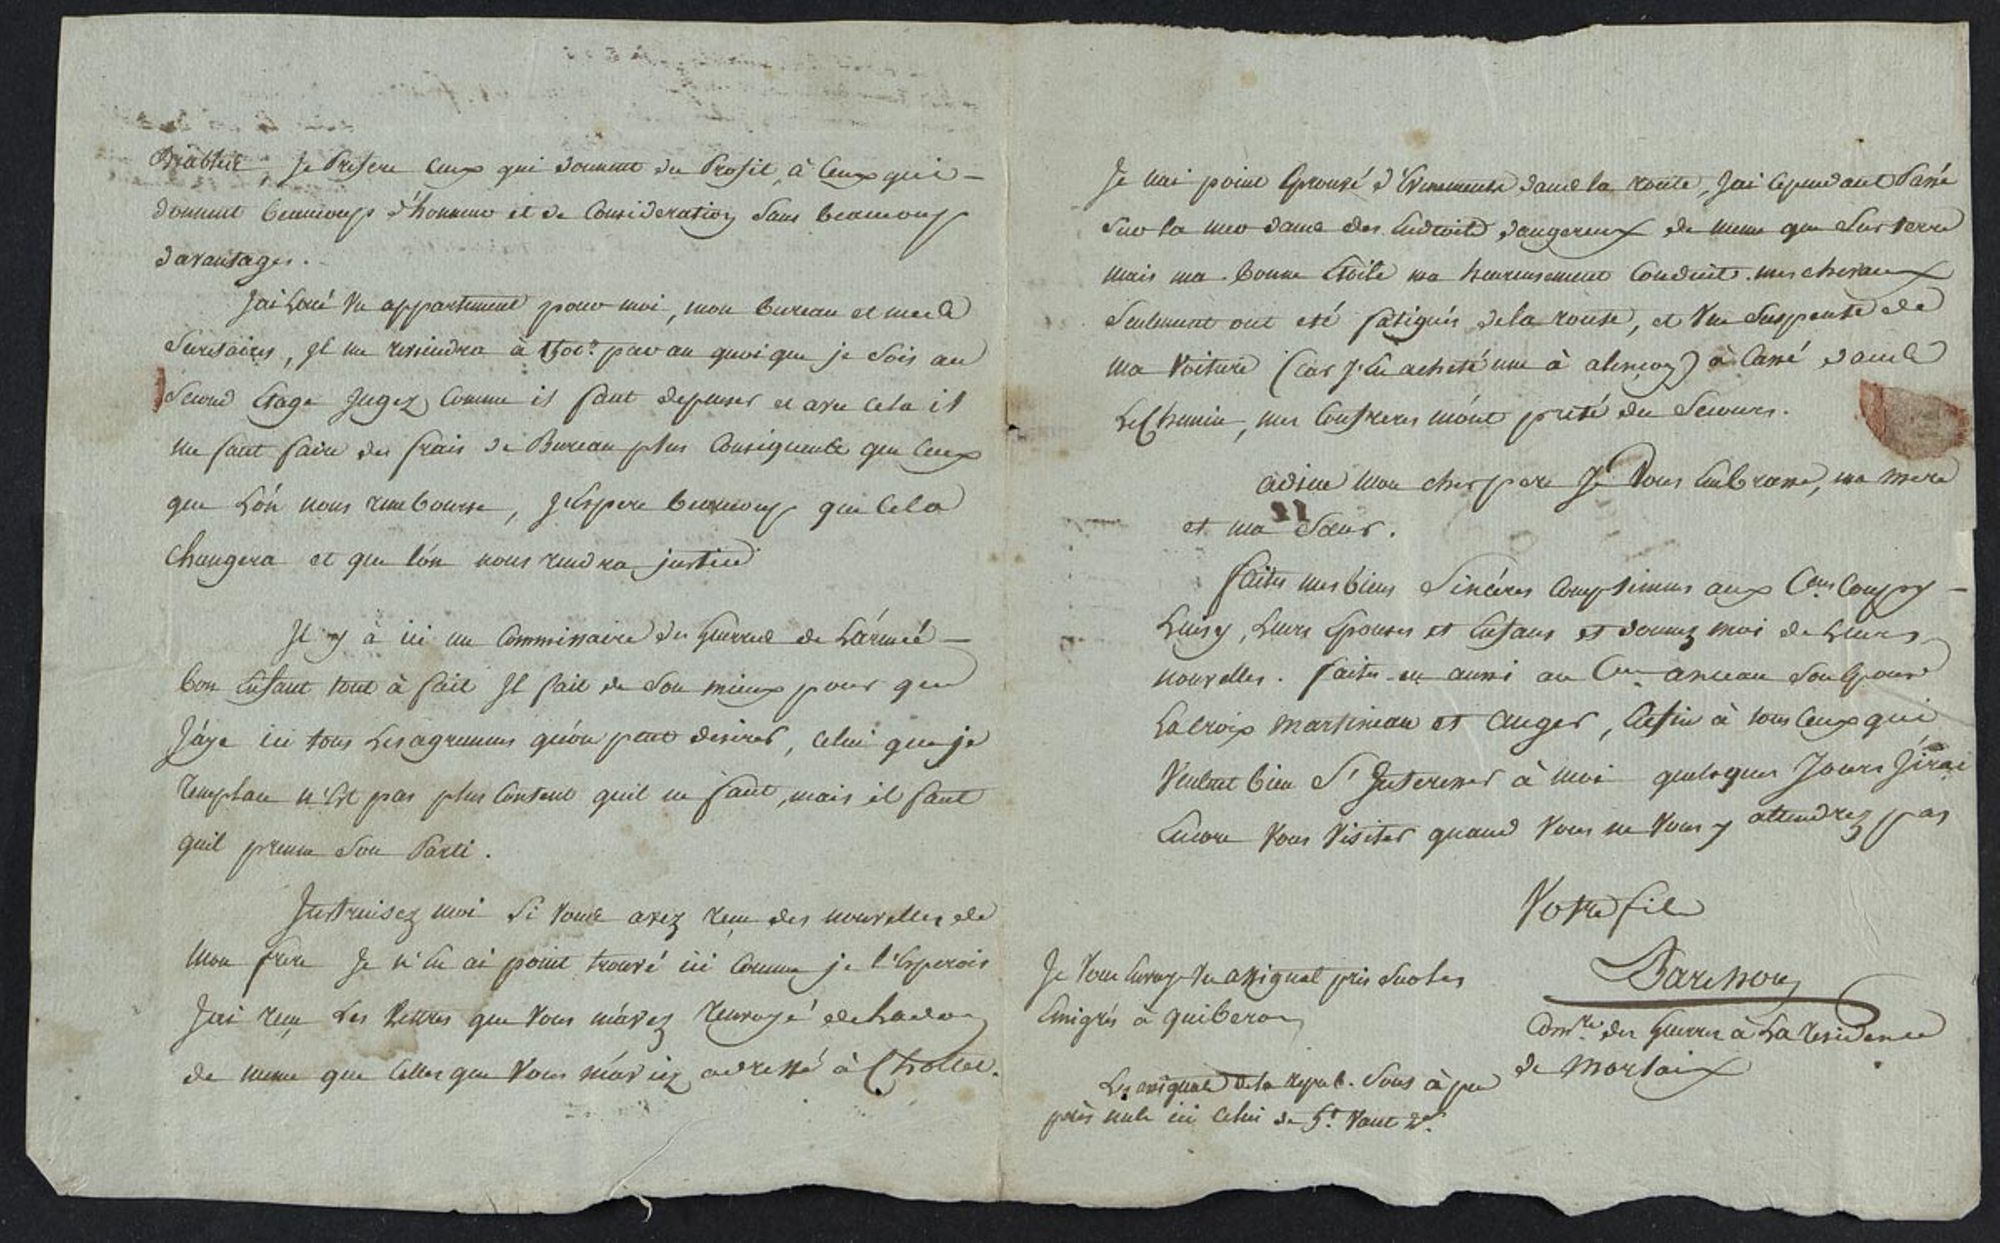 je Prefere ceux qui donnent du Profit à Ceux qui
donnent beaucoup d'honneur et de Consideration Sans beaucoup
davantages.
J'ai Loué un appartement pour moi, mon bureau et mes
Secretaires, il me reviendra à par an quoi que je sois au
Second Etage Jugez Comme il faut depenser et avec cela il
me faut faire des frais de Bureau plus Consiquents que Ceux
que L'on nous rembourse, J'Espere beaucoup que Cela
Changera et que l'on nous rendra justice
Il y à ici un Commissaire des Guerres de L'armée
bon Enfant tout à fait Il fait de Son mieux pour que
J'aye ici tous Les agremens qu'on peut desirer, Celui que je
remplace n'Est pas plus Content quil ne faut, mais il faut
quil prenne Son Parti.
Instruisez moi Si Vous avez reçu des nouvelles de
mon frere Je n'En ai point trouvé ici Comme je l'Esperois
J'ai reçu Les Lettres que Vous m'avez renvoyé de
de meme que Celles que Vous m'aviez adressé à Chollet.
Je n'ai point Eprouvé d'Evenements dans la route, J'ai Cependant Passé
Sur la mer dans des Endroits dangereux de meme que Sur terre
mais ma bonne Etoile m'a heureusement Conduit. mes chevaux
Seulement ont eté fatigués de la route, et une Suspente de
ma Voiture (Car J'En acheté une à alençon) à Cassé dans
Le Chemin, mes Confreres m'ont preté du Secours.
adieu mon cher pere Je Vous Embrasse, ma mere
et ma Sœur.
faites mes biens Sincéres Complimens aux Cens Coupry
Luisy, Leurs Epouses et Enfans et donnez moi de Leurs
nouvelles. faites en aussi au Cen anceau Son Epouse
Lacroix martineau et auger, Enfin à tous Ceux qui
Veulent bien S'Interesser à moi quelques Jours J'irai
Encore Vous Visiter quand Vous ne Vous y attendrez pas
Votre fils
Comre des Guerres à La residence
de Morlaix
Je Vous Envoye un assignat pris Sur les
Emigrés à quiberon
Les assignats de la repub. Sous à peu
près nuls ici Celui de 5# Vaut 2s.